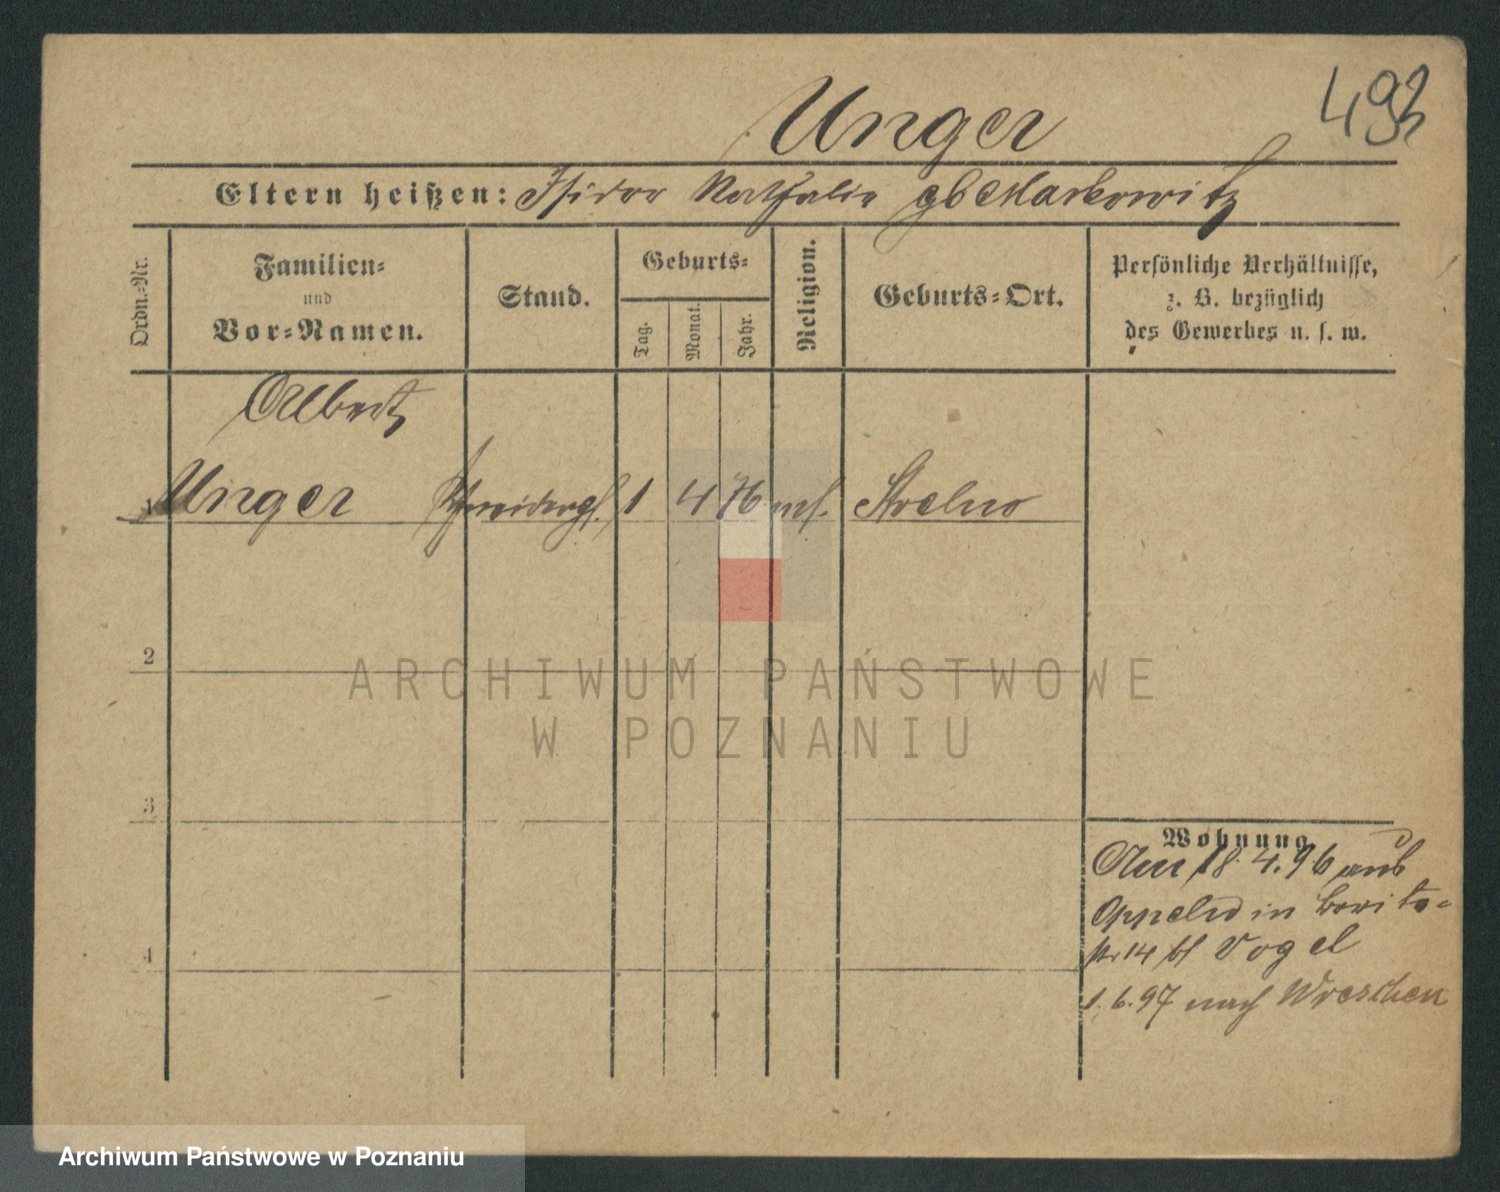 493
Unger
Eltern heißen: Isidor Nathalie gb Markowitz
Ordn.-Nr.
Familien-
und
Vor-Namen.
Stand.
Geburts-
Tag.
Monat.
Jahr.
Religion.
Geburts-Ort.
Persönliche Verhältnisse,
z. B. bezüglich
des Gewerbes u. s. w.
Albert
1 Unger Schneidergs. 1 4 76 mos. Strelno
2
3
4
Wohnung
Am 18. 4. 96 aus
in
str 14 bei Vogel
1. 6. 97 nach Wreschen
ARCHIWUM PAŃSTWOWE
W POZNANIU
Archiwum Państwowe w Poznaniu